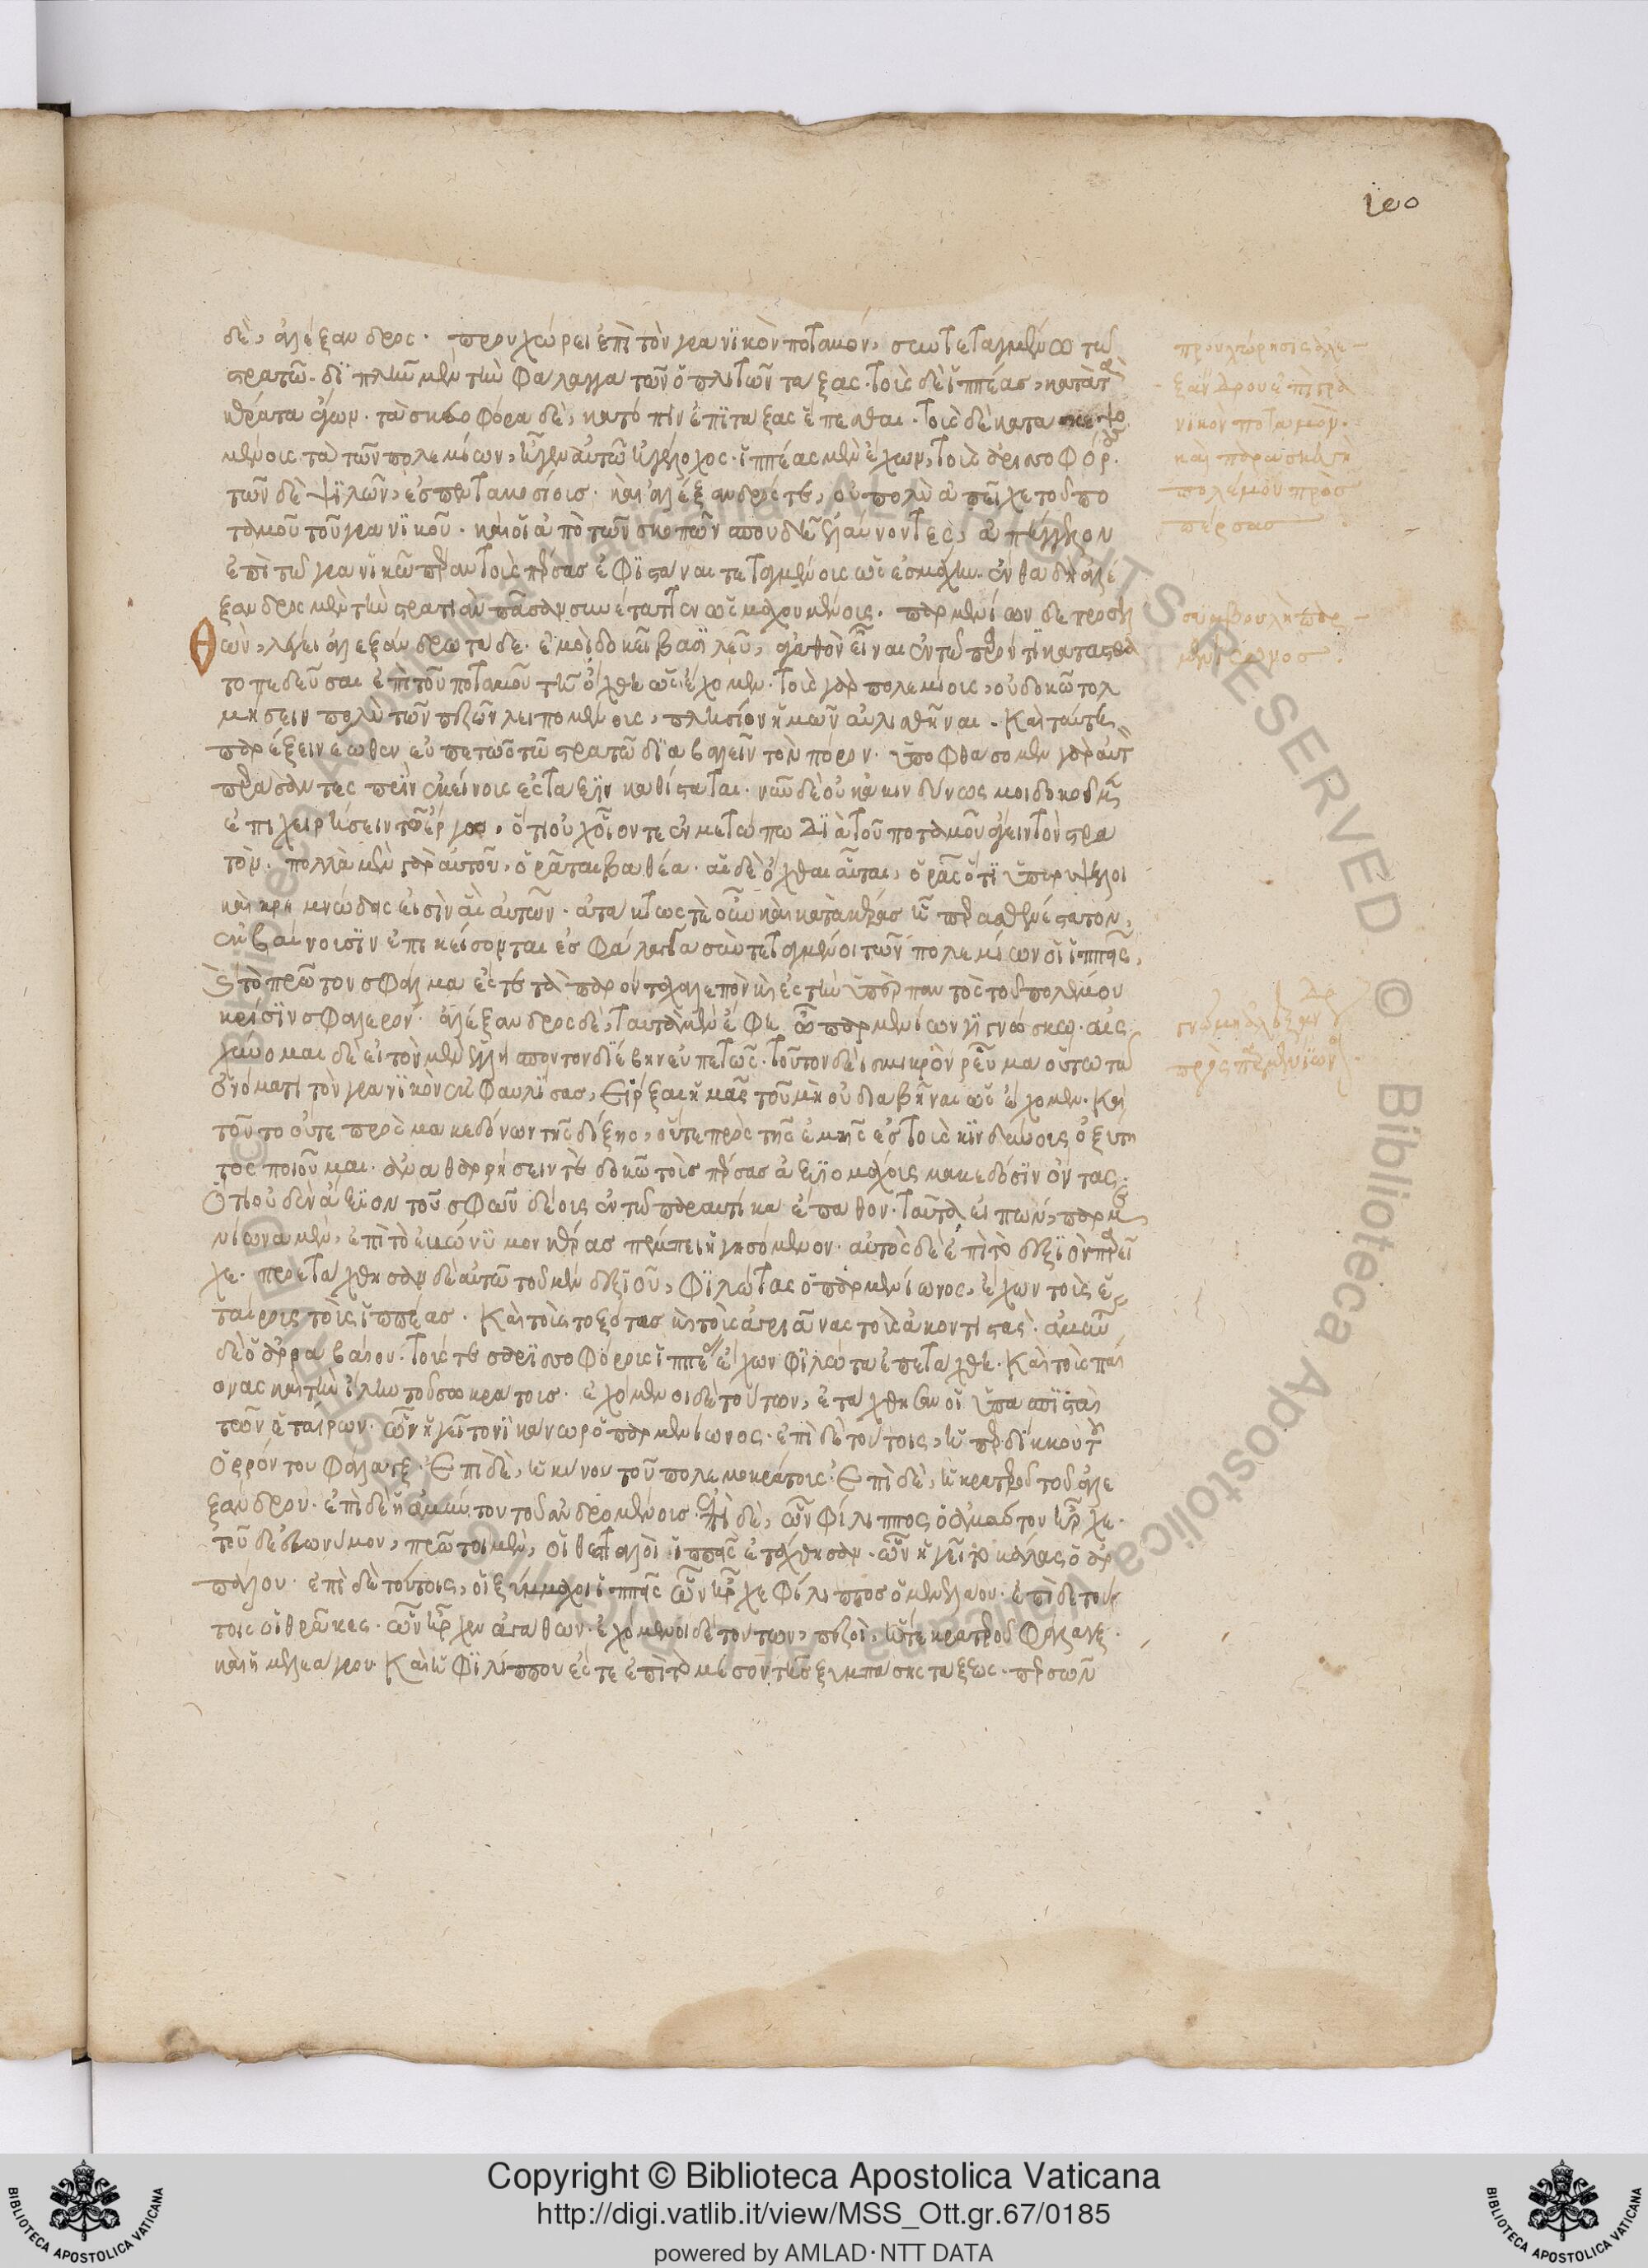 ϊεο
δὲ, ἀλέξανδρος. προυχώρει ἐπὶ τὸν γρανϊκὸν ποταμὸν, συντεταγμένω τῶ
στρατῶ. διπλῆν μὲν τὴν φάλαγγα τῶν ὁπλιτῶν τάξας. τοὺς δὲ ἱππέας, κατὰ τὰ
κέρατα ἄγων. τὰ σκευοφόρα δὲ, κατόπιν ἐπιτάξας ἕπεσθαι. τοὺς δὲ κατασκεψο
μένους τὰ τῶν πολεμίων, ἦγεν αὐτῶ ἡγέλοχος. ἱππέας μὲν ἔχων, τοὺς σαρισοφόρους.
τῶν δὲ ψιλῶν, ἐς πεντακοσίους. καὶ ἀλέξανδρός τε, οὐ πολὺ ἀπεῖχε τοῦ πο
ταμοῦ τοῦ γρανϊκοῦ. καὶ οἱ ἀπὸ τῶν σκοπῶν σπουδῆ ἐλαύνοντες, ἀπήγγελον
ἐπὶ τῶ γρανϊκῶ πέραν τοὺς πέρσας ἐφιστάναι τεταγμένους ὡς ἐς μάχην. ἔνθα δὴ ἀλέ
ξανδρος μὲν τὴν στρατιὰν πᾶσαν συνέταττεν ὡς μαχουμένους. παρμενίων δὲ προσελ
θὼν, λέγει ἀλεξάνδρω τάδε. ἐμοὶ δοκεῖ βασιλεῦ, ἀγαθὸν εἶναι ἐν τῶ παρόντι καταστρα
τοπεδεῦσαι ἐπὶ τοῦ ποταμοῦ τῆ ὄχθη ὡς ἔχομεν. τοὺς γὰρ πολεμίους, οὐ δοκῶ τολ
μήσειν πολὺ τῶν πεζῶν λειπομένους, πλησίον ἡμῶν αὐλισθῆναι. καὶ ταύτη
παρέξειν ἕωθεν εὐπετῶς τῶ στρατῶ διαβαλεῖν τὸν πόρον. ὑποφθάσομεν γὰρ αὐτοὶ
περάσαντες πρὶν ἐκείνους ἐς τάξιν καθίστασθαι. νῦν δὲ οὐκ ἀκινδύνως μοι δοκοῦμεν
ἐπιχειρήσειν τῶ ἔργω, ὅτι οὐχ οἷόν τε ἐν μετώπω διὰ τοῦ ποταμοῦ ἄγειν τὸν στρα
τόν. πολλὰ μὲν γὰρ αὐτοῦ, ὁρᾶται βαθέα. αἱ δὲ ὄχθαι αὗται, ὁρᾶς ὅτι ὑπερύψηλοι
καὶ κρημνώδεις εἰσὶν αἱ αὐτῶν. ἀτάκτως τε οὖν καὶ κατὰ κέρας ἧπερ ἀσθενέστατον,
ἐκβαίνουσιν ἐπικείσονται ἐς φάλαγγα συντεταγμένοι τῶν πολεμίων οἱ ἱππεῖς,
καὶ τὸ πρῶτον σφάλμα ἔς τε τὰ παρόντα χαλεπὸν καὶ ἐς τὴν ὑπὲρ παντὸς τοῦ πολέμου
κρίσιν σφαλερόν. ἀλέξανδρος δὲ, ταῦτα μὲν ἔφη ὦ παρμενίων γιγνώσκω. αἰς
χύνομαι δὲ εἰ τὸν μὲν ἑλλήσποντον διέβην εὐπετῶς. τοῦτον δὲ σμικρὸν ῥεῦμα οὕτω τῶ
ὀνόματι τὸν γρανϊκὸν ἐκφαυλίσας, εἴρξαι ἡμᾶς τοῦ μὴ οὐ διαβῆναι ὡς ἔχομεν. καὶ
τοῦτο οὔτε πρὸς μακεδόνων τῆς δόξης, οὔτε πρὸς τῆς ἐμῆς ἐς τοὺς κινδύνους ὀξύτη
τος ποιοῦμαι. ἀναθαρρήσειν τε δοκῶ τοὺς πέρσας ἀξιομάχους μακεδόσιν ὄντας.
ὅτι οὐδὲν ἄξιον τοῦ σφῶν δέους ἐν τῶ παραυτίκα ἔπαθον. ταῦτα εἰπὼν, παρμε
νίωνα μὲν, ἐπὶ τὸ εὐώνυμον κέρας πέμπει ἡγησόμενον. αὐτὸς δὲ ἐπὶ τὸ δεξιὸν παρῆ
γε. προετάχθησαν δὲ αὐτῶ τοῦ μὲν δεξιοῦ, φιλώτας ὁ παρμενίωνος, ἔχων τοὺς ἑ
ταίρους τοὺς ἱππέας. καὶ τοὺς τοξότας καὶ τοὺς ἀγριᾶνας τοὺς ἀκοντιστάς. ἀμύντας
δὲ ὁ ἀρραβαίου. τούς τε σαρισοφόρους ἱππέας ἔχων φιλώτα ἐπετάχθη. καὶ τοὺς παί
ονας καὶ τὴν ἴλην τοῦ σωκράτους. ἐχόμενοι δὲ τούτων, ἐτάχθησαν οἱ ὑπασπισταὶ
τῶν ἑταίρων. ὧν ἡγεῖτο νικάνωρ ὁ παρμενίωνος. ἐπὶ δὲ τούτοις, ἡ περδίκκου τοῦ
ὀρόντου φάλαγξ. ἐπὶ δὲ, ἡ κοίνου τοῦ πολεμοκράτους. ἐπὶ δὲ, ἡ κρατεροῦ τοῦ ἀλε
ξάνδρου. ἐπὶ δὲ ἡ ἀμύντου τοῦ ἀνδρομένους. ἐπὶ δὲ, ὧν φίλιππος ὁ ἀμύντου ἦρχε.
τοῦ δὲ εὐωνύμου, πρῶτοι μὲν, οἱ θετταλοὶ ἱππεῖς ἐτάχθησαν. ὧν ἡγεῖτο κάλας ὁ ἁρ
πάλου. ἐπὶ δὲ τούτοις, οἱ ξύμμαχοι ἱππεῖς ὧν ἦρχε φίλιππος ὁ μενελάου. ἐπὶ δὲ τού
τοις οἱ θρᾶκες. ὧν ἦρχεν ἀγάθων. ἐχόμενοι δὲ τούτων, πεζοὶ, ἥ τε κρατεροῦ φάλαγξ.
καὶ ἡ μελεάγρου. καὶ ἡ φιλίππου ἔς τε ἐπὶ τὸ μέσον τῆς ξυμπάσης τάξεως. περσῶν
προυχώρησις ἀλε
ξάνδρου ἐπὶ γρα
νϊκὸν ποταμὸν.
καὶ παρασκευὴ
πολέμου πρὸς
πέρσας
συμβουλὴ παρ
μενίωνος.
γνώμη ἀλεξάνδρου
πρὸς παρμενίωνα
Copyright © Biblioteca Apostolica Vaticana
http://digi.vatlib.it/view/MSS_Ott.gr.67/0185
powered by AMLAD·NTT DATA
BIBLIOTECA APOSTOLICA VATICANA
BIBLIOTECA APOSTOLICA VATICANA